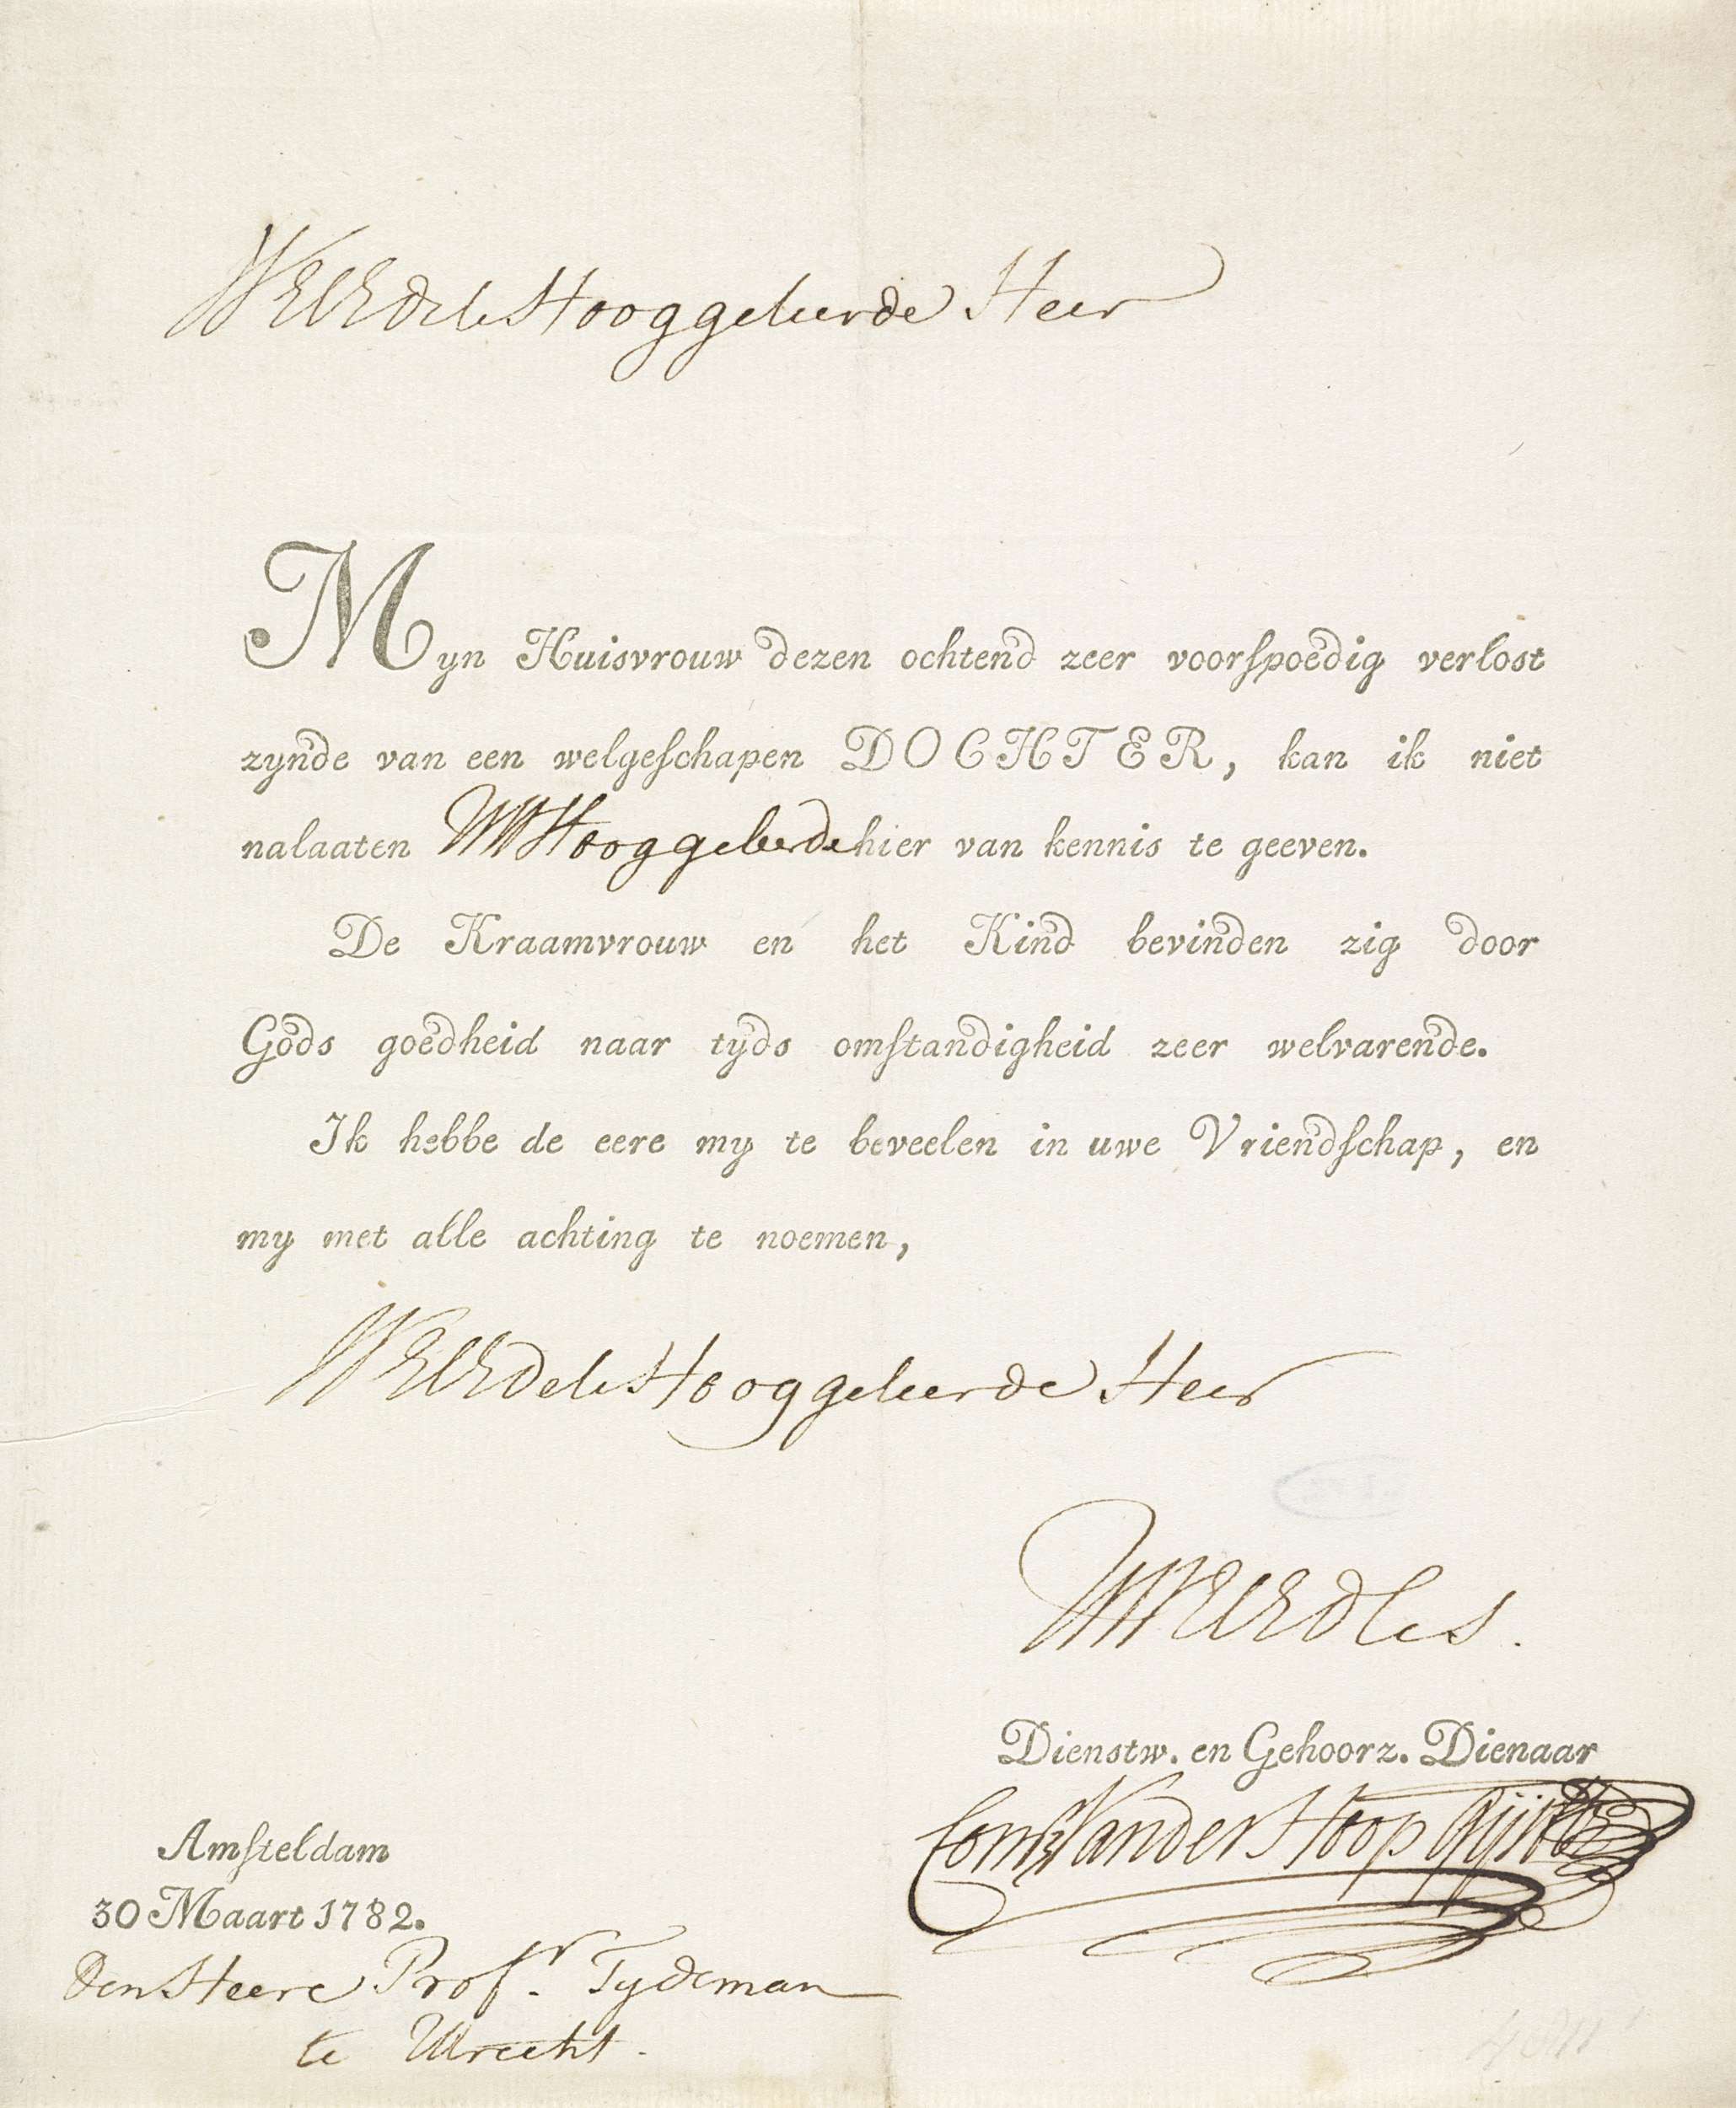 WelEdele Hooggeleerde Heer
Myn Huisvrouw dezen ochtend zeer voorſpoedig verlost
zynde van een welgeſchapen DOCHTER, kan ik niet
nalaaten UW Hooggeleerde hier van kennis te geeven.
De Kraamvrouw en het Kind bevinden zig door
Gods goedheid naar tyds omſtandigheid zeer welvarende.
Ik hebbe de eere my te beveelen in uwe Vriendſchap, en
my met alle achting te noemen,
WelEdele Hooggeleerde Heer
UWelEdles.
Dienstw. en Gehoorz. Dienaar
Van der Hoop
Amſteldam
30 Maart 1782.
Den Heere Profr. Tydeman
te Utrecht.